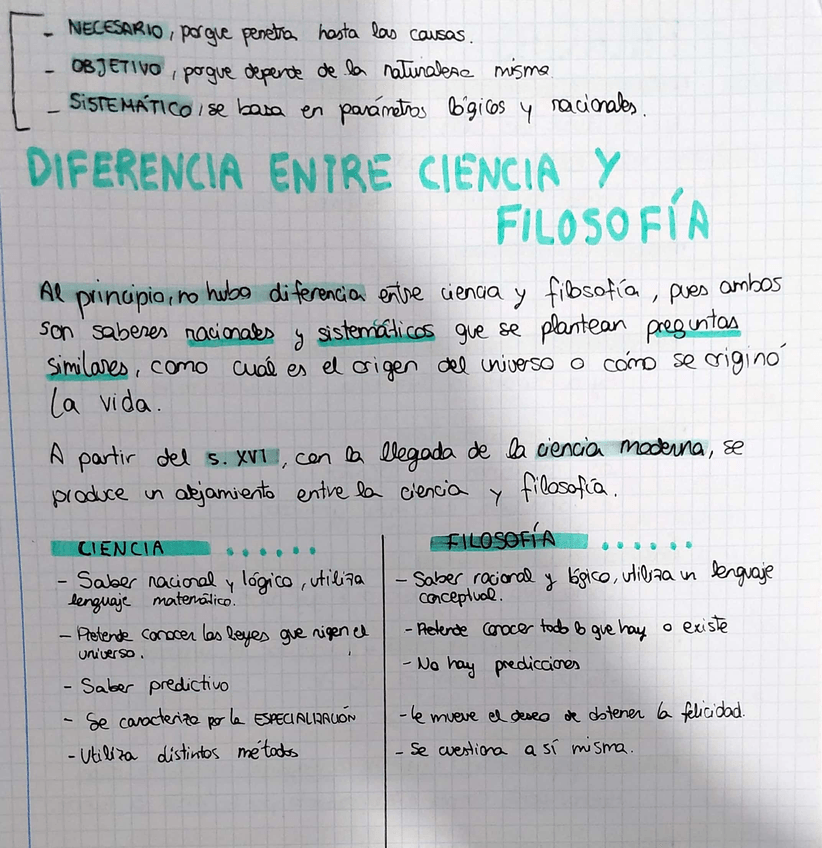 - NECESARIO, porque penetra hasta las causas.
- OBJETIVO, porque depende de la naturaleza misma.
- SISTEMÁTICO, se basa en parámetros lógicos y racionales.
DIFERENCIA ENTRE CIENCIA Y
FILOSOFÍA
Al principio, no hubo diferencia entre ciencia y filosofía, pues ambos
son saberes racionales y sistemáticos que se plantean preguntas
similares, como cuál es el origen del universo o cómo se originó
la vida.
A partir del s. XVI, con la llegada de la ciencia moderna, se
produce un alejamiento entre la ciencia y filosofía.
CIENCIA ......
- Saber racional y lógico, utiliza
lenguaje matemático.
- Pretende conocer las leyes que rigen el
universo.
- Saber predictivo
- Se caracteriza por la ESPECIALIZACIÓN
- Utiliza distintos métodos
FILOSOFÍA ......
- Saber racional y lógico, utiliza un lenguaje
conceptual.
- Pretende conocer todo lo que hay o existe
- No hay predicciones
- le mueve el deseo de obtener la felicidad.
- Se cuestiona a sí misma.